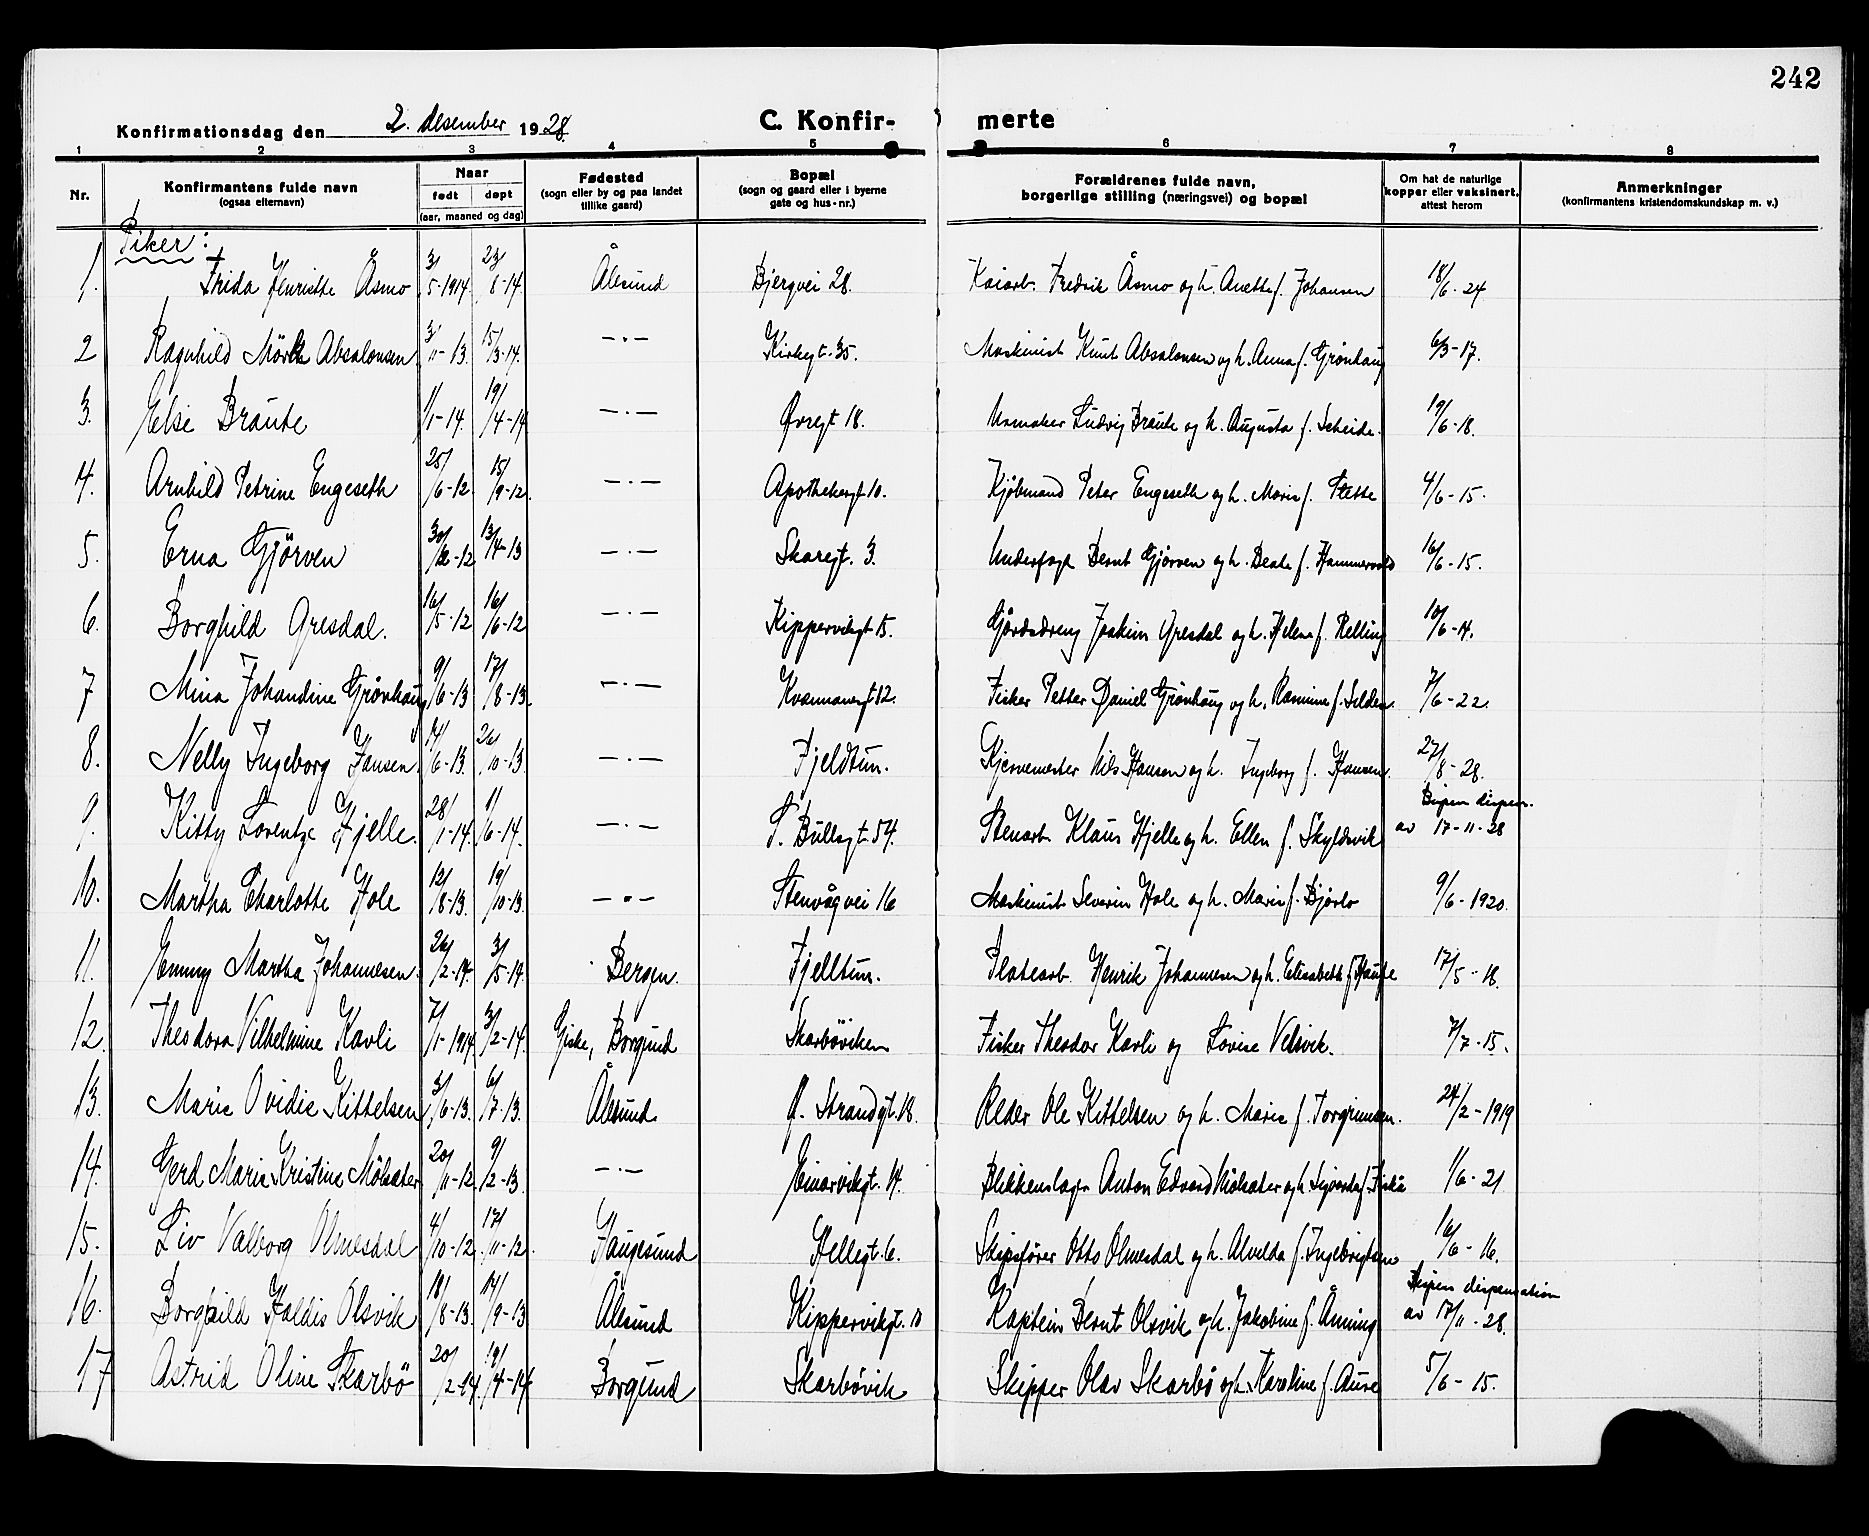 242
Konfirmationsdag den 2. desember 1928.
C. Konfir- merte
1 2 3 4 5 6 7 8
Nr.
Konfirmantens fulde navn
(ogsaa efternavn)
Naar
født døpt
(aar, maaned og dag)
Fødested
(sogn eller by og paa landet
tillike gaard)
Bopæl
(sogn og gaard eller i byerne
gate og hus-nr.)
Forældrenes fulde navn,
borgerlige stilling (næringsvei) og bopæl
Om hat de naturlige
kopper eller vaksinert,
attest herom
Anmerkninger
(konfirmantens kristendomskundskap m. v.)
Piker:
1. Frida Henriette Åsmo 3/5-1914. 23/8-14. Ålesund Bjergvei 28. Kaiarb. Fredrik Åsmo og h. Anette f. Johansen 18/6-24
2 Ragnhild Mörk Absalonsen 3/11-13. 15/3-14. —·— Kirkegt. 35. Maskinist Knut Absalonsen og h. Anna f. Grönhaug 6/3-17.
3. Else Braute 1/1-14. 19/4-14 —·— Øvregt 18. Urmaker Ludvig Braute og h. Augusta f. Scheide. 19/6-18.
4. Arnhild Petrine Engeseth 25/6-12. 15/9-12. —·— Apothekergt 10. Kjöbmand Peter Engeseth og h. Marie f. Slette 4/6-15.
5. Erna Gjörven 30/12-12 13/4-13 —·— Skaregt. 3. Underfogd Bernt Gjörven og h. Beate f. Hammervold 16/6-15.
6. Borghild Gresdal. 16/5-12 16/6-12 —·— Kippervikgt 15. Gårdsdreng Joakim Gresdal og h. Helene f. Relling 10/6-14.
7 Mina Johandine Grönhaug 9/6-13 17/8-13. —·— Kvannavegt 12. Fisker Petter Daniel Grönhaug og h. Rasmine f. Selden. 7/6-22.
8. Nelly Ingeborg Hansen. 14/6-13. 26/10-13. —·— Fjeldtun. Nils Hansen og h. Ingeborg f. Hansen. 27/8-28.
9. Kitty Lorentze Hjelle. 28/1-14. 1/6-14. —·— Bullsgt. 54. Stenarb. Klaus Hjelle og h. Ellen f. Skyldsvik Bispens dispens. av 17-11-28
10. Martha Charlotte Hole 12/8-13. 19/10-13. —·— Stenvågvei 16 Maskinist Severin Hole og h. Marie f. Björlo 9/6-1920.
11. Emmy Martha Johannesen. 26/2-14. 3/5-14. Bergen. Fjelltun. Platearb. Henrik Johannesen og h. Elisabeth f. Hauge 17/5-18.
12. Theodora Vilhelmine Kavli 7/1-1914 3/2-14. Giske, Borgund Skarböviken Fisker Theodor Kavli og Lovise Velsvik. 7/7-15.
13. Marie Ovidie Kittelsen. 3/6-13. 6/7-13. Ålesund. Strandgt. 18. Reder Ole Kittelsen og h. Marie f. Torgrimsen. 24/2-1919
14. Gerd Marie Kristine Mölsæter 20/11-12 9/2-13. —·— Einarvikgt. 14. Blikkenslager Anton Edvard Mölsæter og h. Sigvarda f. Fiskå 1/6-21
15. Liv Valborg Olmesdal 4/10-12. 17/11-12. Haugesund Hellegt. 6. Skipsförer Otto Olmesdal og h. Alvelda f. Ingebrigtsen 16/6-16.
16. Borghild Haldis Olsvik 18/8-13. 14/9-13 Ålesund Kippervikgt. 10 Kaptein Bernt Olsvik og h. Jakobine f. Ånning Bispens dispensation av 17/11-28.
17 Astrid Oline Skarbö 20/2-14. 19/4-14. Borgund Skarbövik Skipper Olav Skarbö og h. Karoline f. Aure 5/6-15.